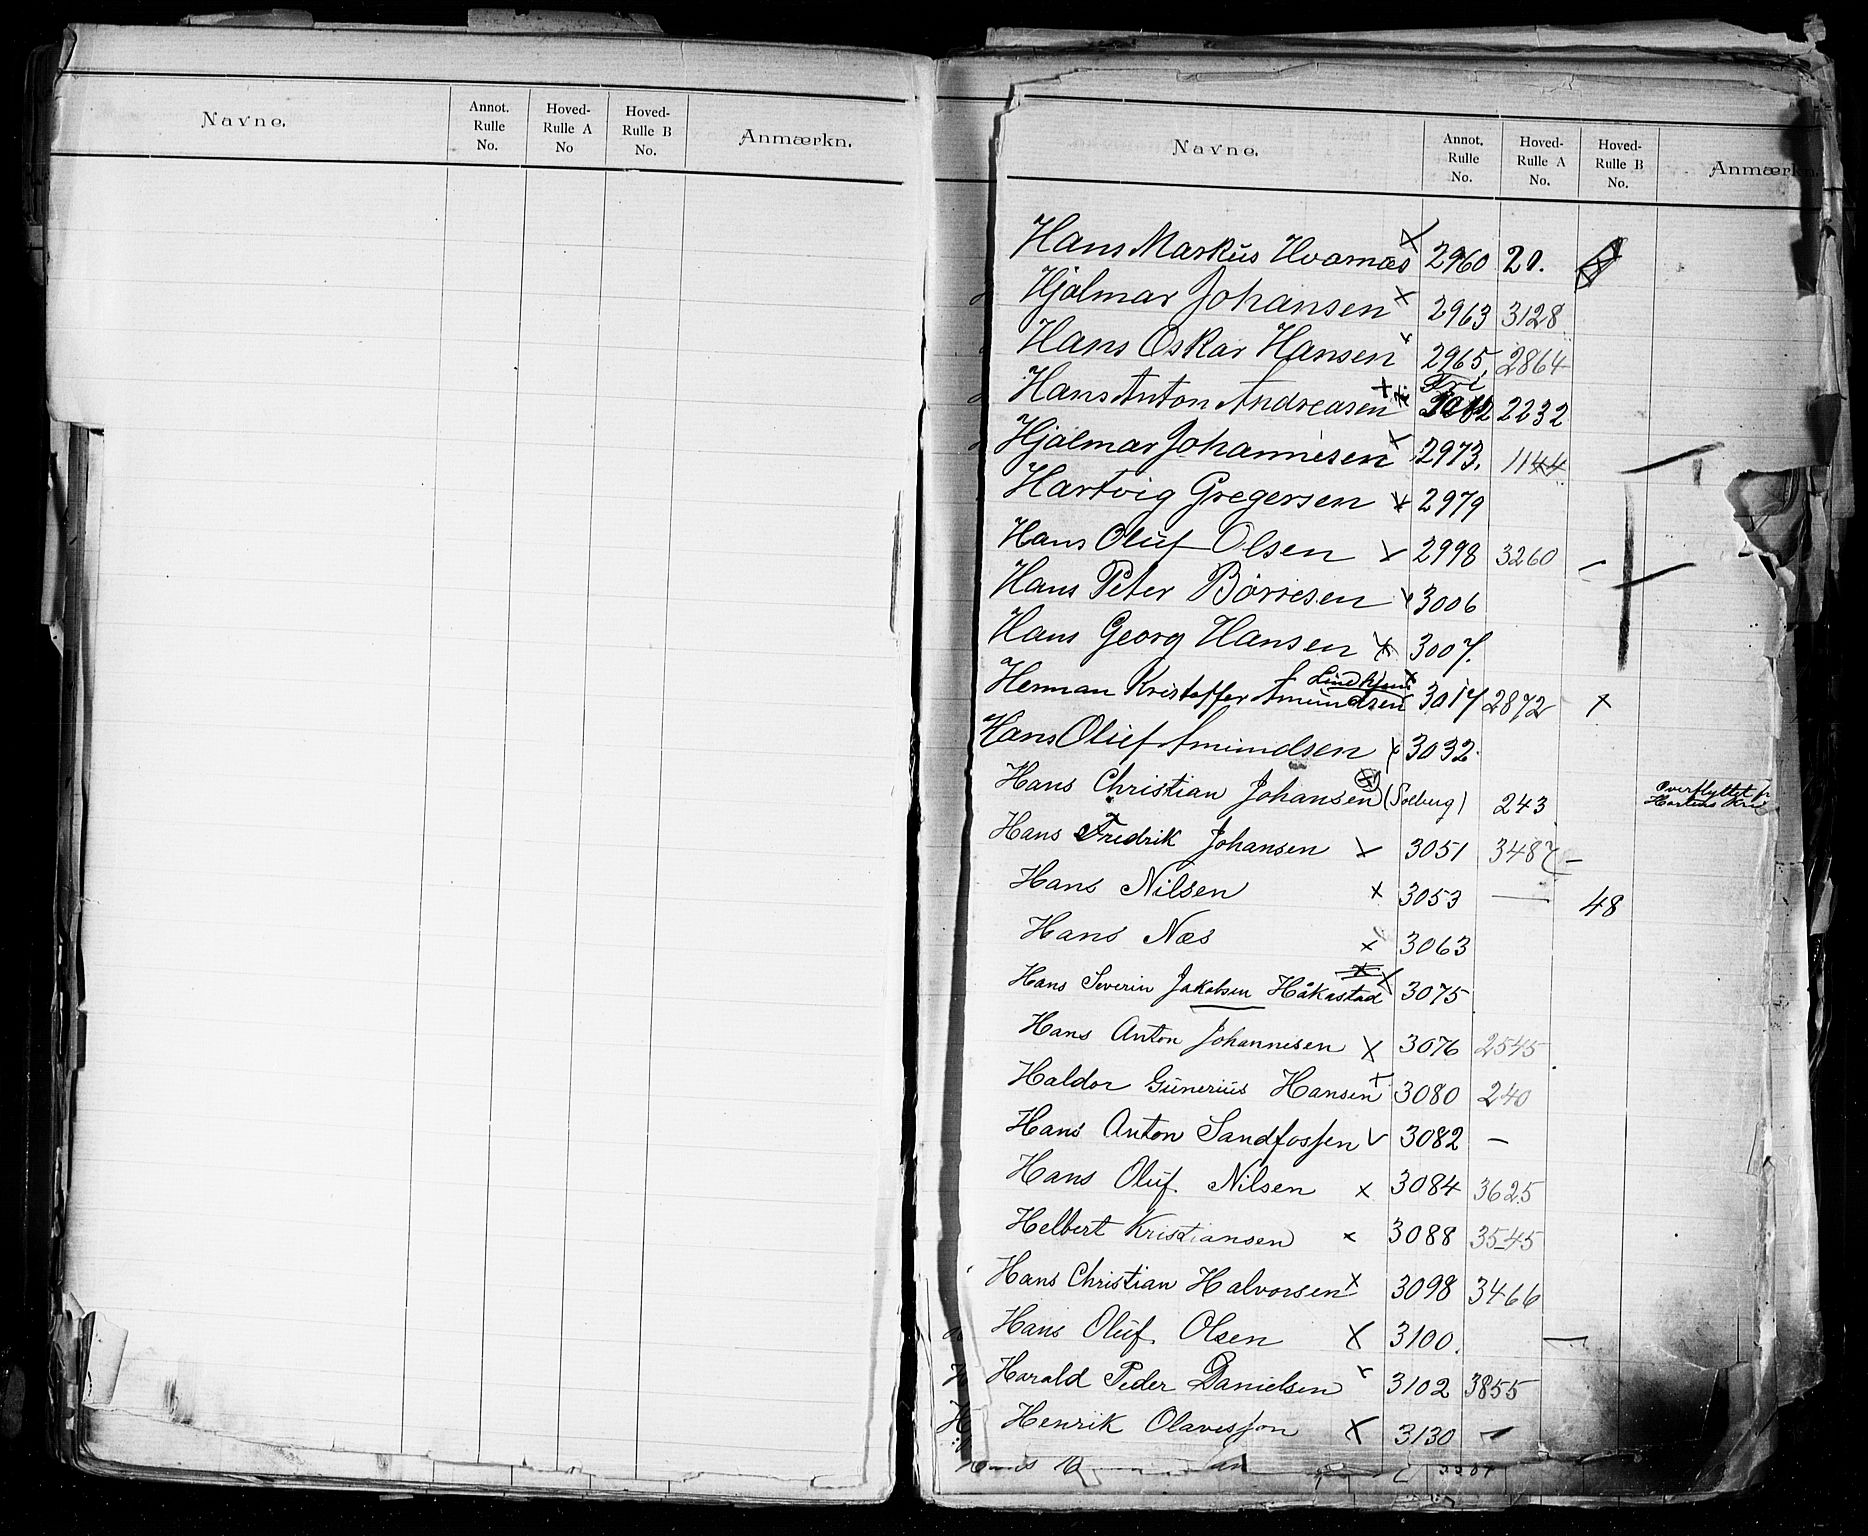 Navne. Annot. Rulle No. Hoved-Rulle A No Hoved-Rulle B No. Anmærkn.
Navne. Annot. Rulle No. Hoved-Rulle A No. Hoved-Rulle B No. Anmærkn.
Hans Markus Hvarnæs 2960 20.
Hjalmar Johansen x 2963 3128
Hans Oskar Hansen x 2965, 2864
Fri
Hans Anton Andreasen x 2232
Hjalmar Johannesen x 2973. 1144
Hartvig Gregersen x 2979
Hans Oluf Olsen x 2998 3260 –
Hans Peter Börresen x 3006
Hans Georg Hansen x 3007.
Lindkjen x
Herman Kristoffer Amundsen 3017 2872 x
Hans Oluf Amundsen x 3032.
Hans Christian Johansen (Solberg) 243 Overflyttet fr
Hortens
Hans Fredrik Johansen x 3051 3487 –
Hans Nilsen x 3053 — 48
Hans Næs x 3063
Hans Severin Jakobsen Håkastad x 3075
Hans Anton Johannesen x 3076 2545
Haldor Gunerius Hansen x 3080 240
Hans Anton Sandfossen v 3082 –
Hans Oluf Nilsen x 3084 3625
Helbert Kristiansen x 3088 3545
Hans Christian Halvorsen x 3098 3466
Hans Oluf Olsen x 3100. —
Harald Peder Danielsen x 3102 3855
Henrik Olavesson x 3130 –